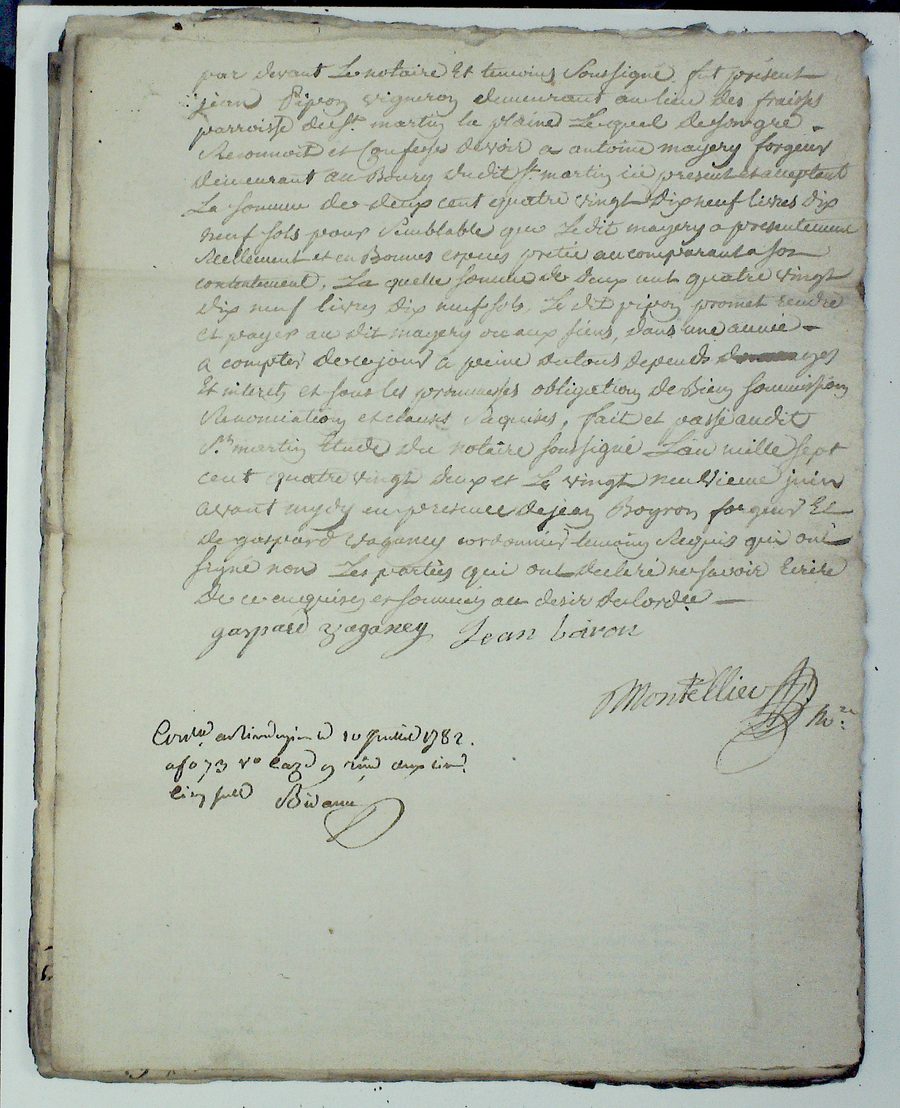 par devant Le notaire Et temoins Soussigné fut présent
jean Pipon vigneron demeurant au lieu des fraises
parroisse de St. martin la plaine Lequel de son gré
Reconnoit et Confesse devoir a antoine mayery forgeur
demeurant au Bourg dudit St. martin ici present et acceptant
La somme de deux cent quatre vingt Dix neuf livres dix
neuf sols pour Semblable que Le dit mayery a presentement
Réellement et en Bonnes especes pretée au comparant a son
contentement, La quelle somme de Deux cent quatre vingt
dix neuf livres dix neuf sols, Le dit pipon promet rendre
et payer au dit mayery ou aux siens, dans une année
a compter de ce jour a peine de tous depends
Et interets et sous les promesses obligation de Biens soumission
Renonciation et clauses Requises, fait et passé audit
St. martin Etude du notaire soussigné L'an mille sept
cent quatre vingt deux et Le vingt neuvieme juin
avant mydy en presence de jean Boyron forgeur Et
de gaspard vaganey cordonnier temoins Requis qui ont
signé non Les parties qui ont declaré ne savoir Ecrire
De ce enquises et sommees au desir de lordce
gaspard vaganey Jean bairon
Montellier No.re
Conlé a Rivedegier le 10 juillet 1782.
a fo 73 vo Caze 9 reçu deux liv.
cinq sols